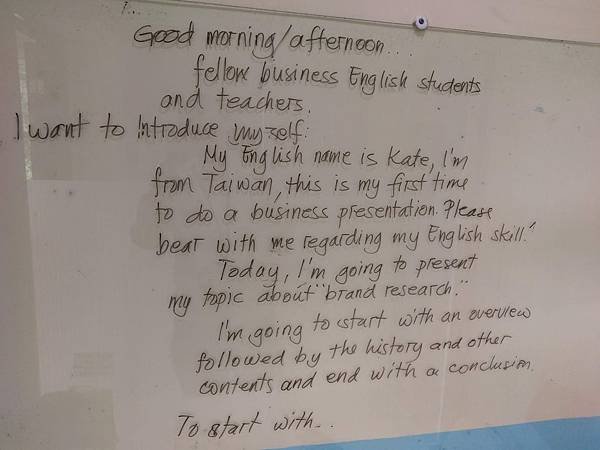 Good morning/afternoon...
fellow business English students
and teachers.
I want to Introduce myself:
My English name is Kate, I'm
from Taiwan, this is my first time
to do a business presentation. Please
bear with me regarding my English skill."
Today, I'm going to present
my topic about "brand research."
I'm going to start with an overview
followed by the history and other
contents and end with a conclusion.
To start with...